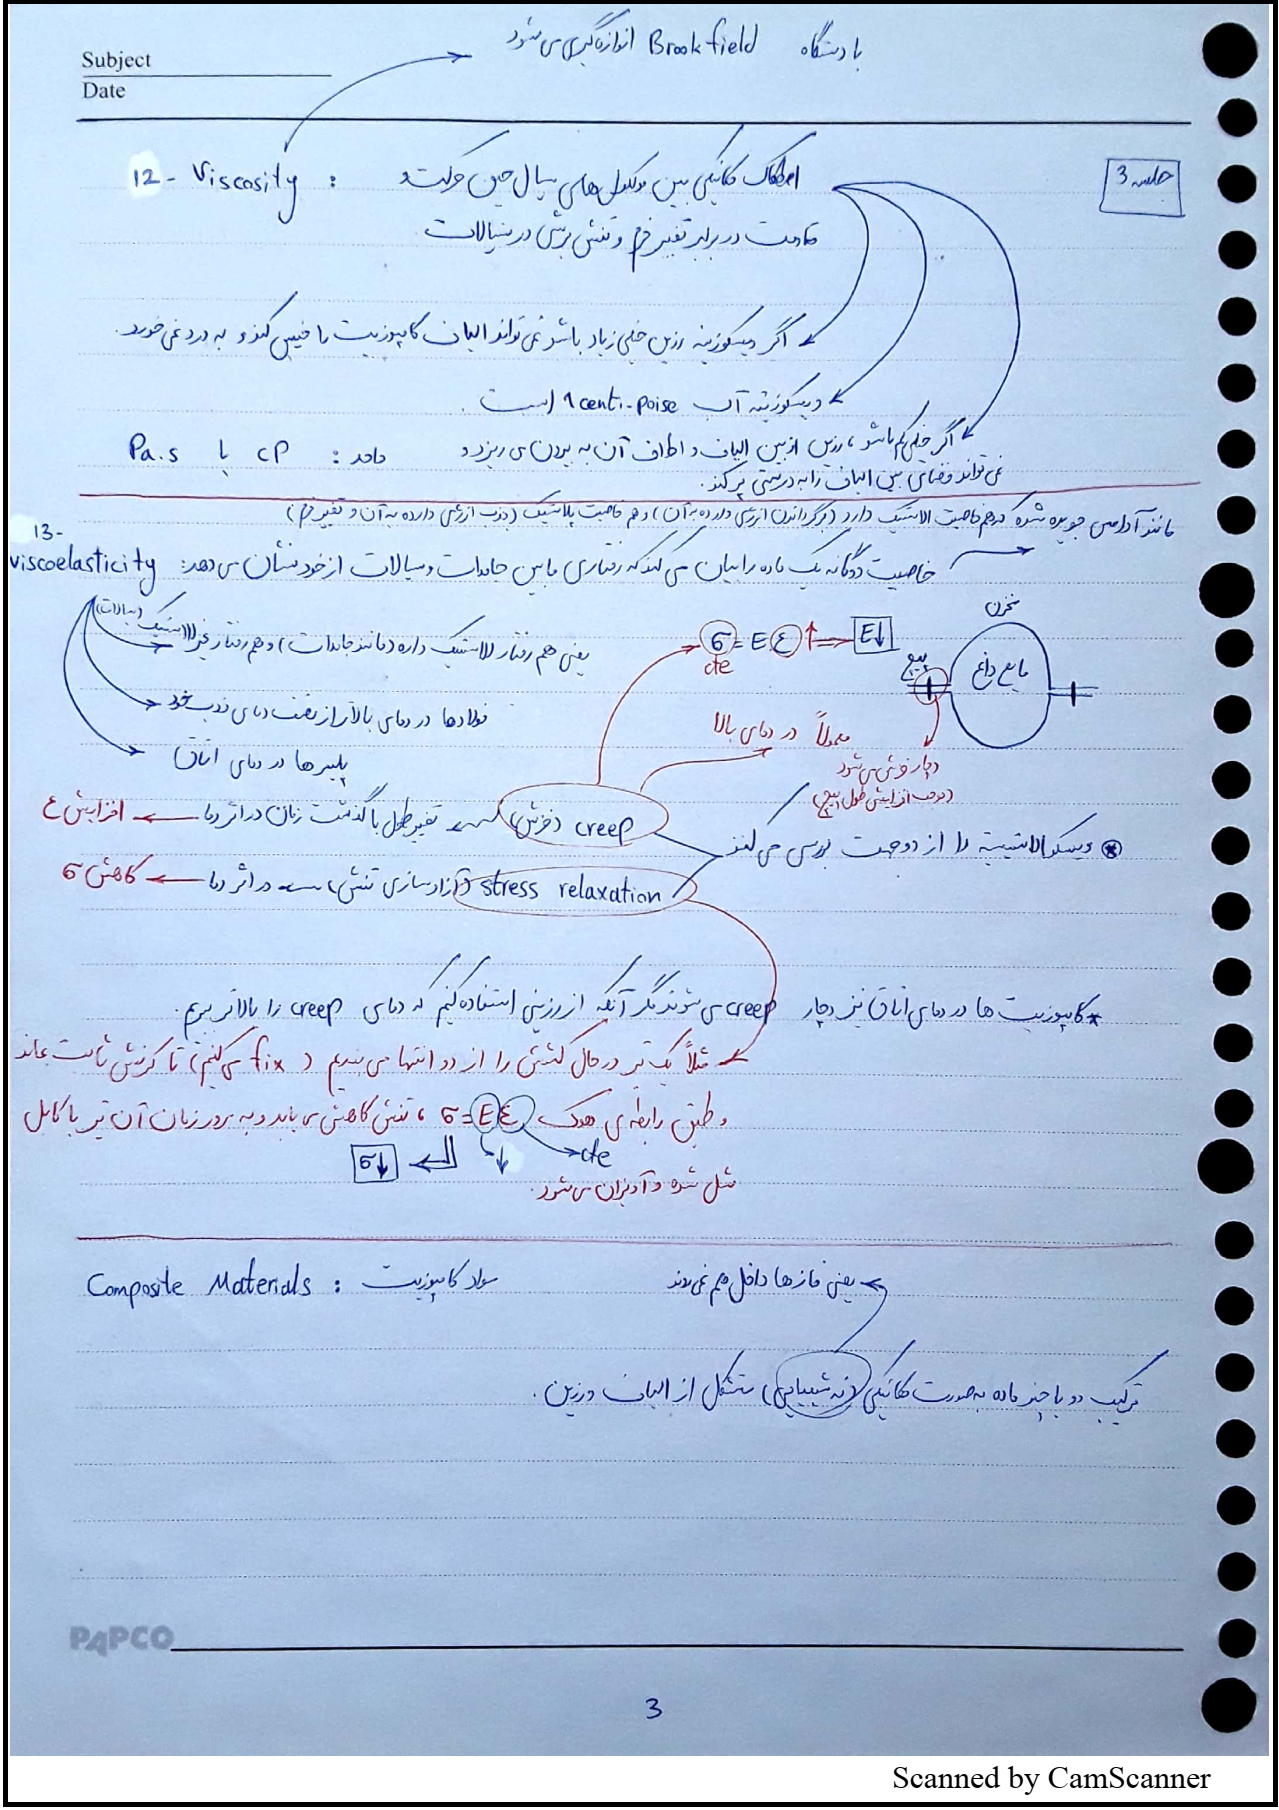 با دستگاه Brookfield اندازه‌گیری می‌شود
Subject
Date
جلسه 3
12- Viscosity : اصطکاک مکانیکی بین مولکول های سیال حین حرکت و
مقاومت در برابر تغییر فرم و تنش برشی در سیالات
اگر ویسکوزیته رزین خیلی زیاد باشد نمی تواند الیاف کامپوزیت را خیس کند و به درد نمی خورد.
ویسکوزیته آب 1 centi-poise است.
اگر خیلی کم باشد، رزین از بین الیاف و اطراف آن به بیرون می ریزد و
واحد : cP یا Pa.s
نمی تواند فضای بین الیاف را به درستی پر کند.
مانند آدامس جویده شده که هم خاصیت الاستیک دارد (برگرداندن انرژی داده به آن) و هم خاصیت پلاستیک (جذب انرژی داده به آن و تغییر فرم)
13-
viscoelasticity : خاصیت دوگانه یک ماده را بیان می کند که رفتاری مابین جامدات و سیالات از خود نشان می دهد
یعنی هم رفتار الاستیک داره (مانند جامدات) و هم رفتار غیر الاستیک (سیالات)
σ = E ε ↑ ⇒ E↓
cte
مخزن
مایع داغ
پیچ
فولادها در دمای بالاتر از نصف دمای ذوب خود
پلیمرها در دمای اتاق
معمولاً در دمای بالا
دچار خزش می شود
(موجب افزایش طول پیچ)
ویسکوالاستیسیته را از دو جهت بررسی می کنند
creep (خزش) ← تغییر طول با گذشت زمان در اثر دما ← افزایش ε
stress relaxation (آزادسازی تنش) ← در اثر دما ← کاهش σ
* کامپوزیت ها در دمای اتاق نیز دچار creep می شوند مگر آنکه از رزینی استفاده کنیم که دمای creep را بالاتر ببریم.
مثلاً یک تیر در حال کشش را از دو انتها می بندیم (fix می کنیم) تا کرنش ثابت بماند
و طبق رابطه ی هوک σ=Eε ، تنش کاهش می یابد و به مرور زمان آن تیر یا کابل
cte
↓
σ↓
شل شده و آویزان می شود.
Composite Materials : مواد کامپوزیت
یعنی فازها داخل هم نمی روند
ترکیب دو یا چند ماده به صورت مکانیکی (نه شیمیایی) متشکل از الیاف و رزین.
PAPCO
3
Scanned by CamScanner